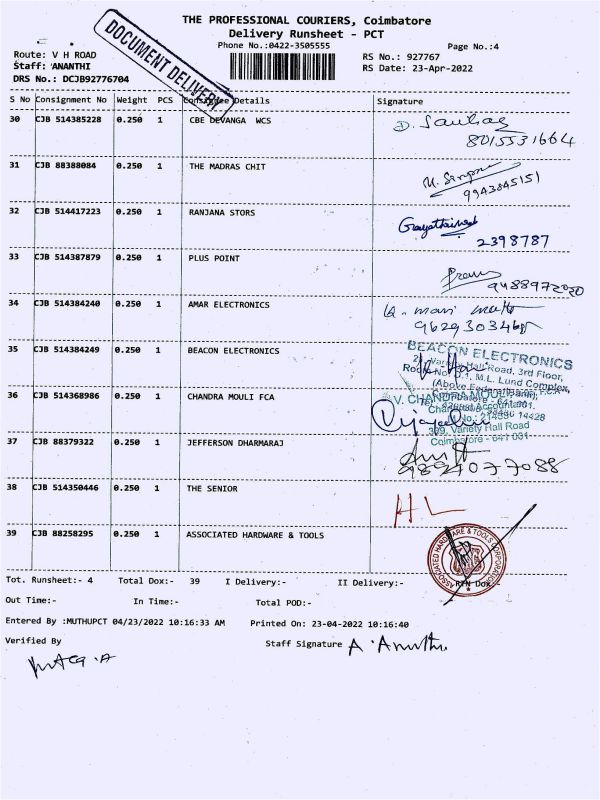 THE PROFESSIONAL COURIERS, Coimbatore
Delivery Runsheet - PCT
Phone No.:0422-3505555
Page No.:4
Route: V H ROAD
RS No.: 927767
Staff: ANANTHI
RS Date: 23-Apr-2022
DRS No.: DCJB92776704
DOCUMENT DELIVERY
S No Consignment No Weight PCS Consignee Details Signature
30 CJB 514385228 0.250 1 CBE DEVANGA WCS
8015531664
31 CJB 88388084 0.250 1 THE MADRAS CHIT
9943845151
32 CJB 514417223 0.250 1 RANJANA STORS
2398787
33 CJB 514387879 0.250 1 PLUS POINT
34 CJB 514384240 0.250 1 AMAR ELECTRONICS
35 CJB 514384249 0.250 1 BEACON ELECTRONICS
BEACON ELECTRONICS
Hall Road, 3rd Floor,
M.L. Lund Complex,
36 CJB 514368986 0.250 1 CHANDRA MOULI FCA
V. CHANDRA MOULI
Accountant
399, Variety Hall Road
Coimbatore - 641 001
37 CJB 88379322 0.250 1 JEFFERSON DHARMARAJ
38 CJB 514350446 0.250 1 THE SENIOR
HL
39 CJB 88258295 0.250 1 ASSOCIATED HARDWARE & TOOLS
ASSOCIATED HARDWARE & TOOLS CORPORATION
Tot. Runsheet:- 4 Total Dox:- 39 I Delivery:- II Delivery:- RTN Dox:-
Out Time:- In Time:- Total POD:-
Entered By :MUTHUPCT 04/23/2022 10:16:33 AM Printed On: 23-04-2022 10:16:40
Verified By Staff Signature